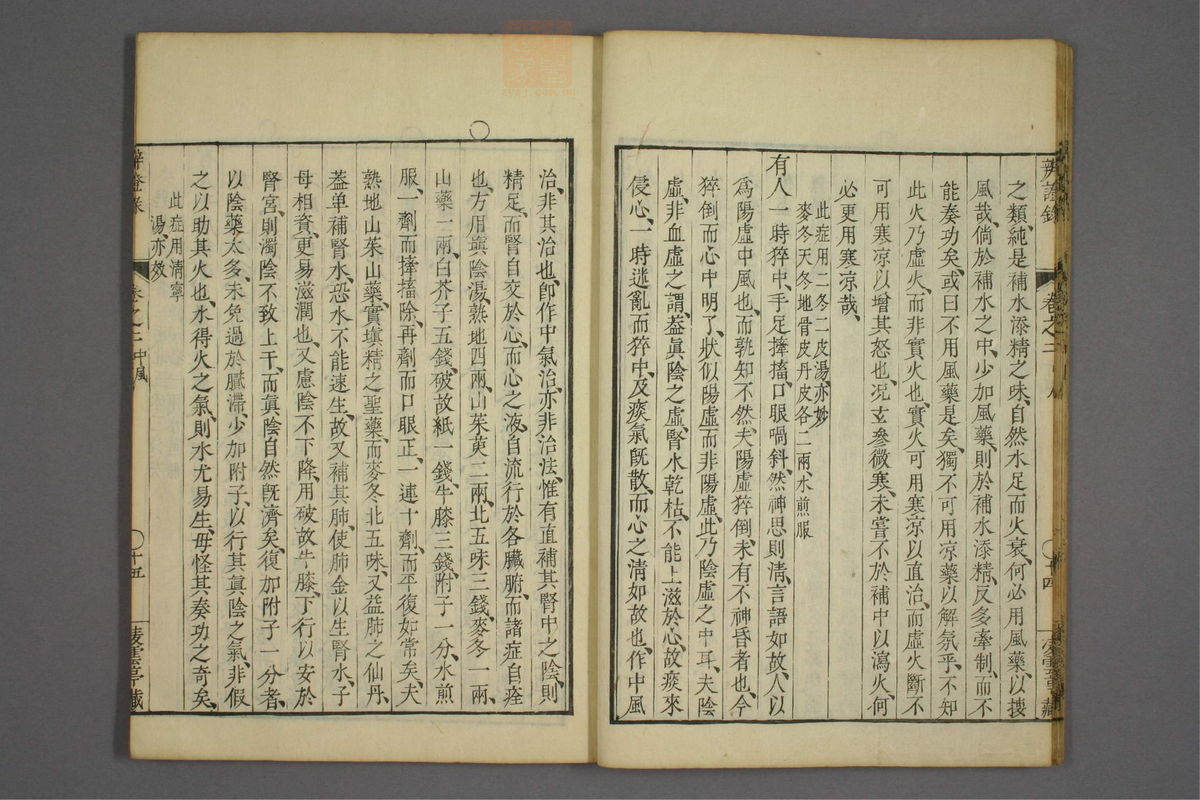 辨證錄
卷之二
十四
之類、純是補水添精之味、自然水足而火衰、何必用風藥、以搜
風哉、倘於補水之中、少加風藥、則於補水添精、反多牽制、而不
能奏功矣、或曰不用風藥是矣、獨不可用凉藥以解氛乎、不知
此火乃虛火、而非實火也、實火可用寒凉以直治、而虛火斷不
可用寒凉以增其怒也、况玄參微寒、未嘗不於補中以瀉火、何
必更用寒凉哉、
此症用二冬二皮湯亦妙
麥冬天冬地骨皮丹皮各二兩水煎服
有人一時猝中、手足搐搦、口眼喎斜、然神思則清、言語如故、人以
為陽虛中風也、而孰知不然、夫陽虛猝倒、未有不神昏者也、今
猝倒而心中明了、狀似陽虛而非陽虛、此乃陰虛之中耳、夫陰
虛、非血虛之謂、葢眞陰之虛、腎水乾枯、不能上滋於心、故痰來
侵心、一時迷亂而猝中、及痰氣既散、而心之清如故也、作中風
治、非其治也、卽作中氣治、亦非治法、惟有直補其腎中之陰、則
精足、而腎自交於心、而心之液、自流行於各臟腑、而諸症自痊
也、方用填陰湯、熟地四兩、山茱萸二兩、北五味三錢、麥冬一兩、
山藥二兩、白芥子五錢、破故紙一錢、牛膝三錢、附子一分、水煎
服、一劑而搐搦除、再劑而口眼正、一連十劑、而平復如常矣、夫
熟地山茱山藥、實填精之聖藥、而麥冬北五味、又益肺之仙丹、
葢单補腎水、恐水不能速生、故又補其肺、使肺金以生腎水、子
母相資、更易滋潤也、又慮陰不下降、用破故牛膝、下行以安於
腎宮、則濁陰不致上干、而眞陰自然既濟矣、復加附子一分者、
以陰藥太多、未免過於膩滯、少加附子、以行其眞陰之氣、非假
之以助其火也、水得火之氣、則水尤易生、毋怪其奏功之奇矣、
此症用清寧
湯亦效
辨證錄
卷之二中風
十五